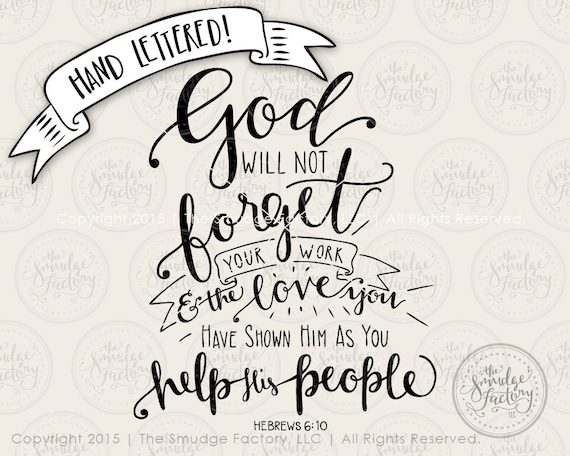 HAND LETTERED!
God
WILL NOT
forget
YOUR WORK
& the love you
HAVE SHOWN HIM AS YOU
help His people
HEBREWS 6:10
Copyright 2015 | The Smudge Factory, LLC | All Rights Reserved.
Copyright 2015 | The Smudge Factory, LLC | All Rights Reserved.
the Smudge Factory LLC